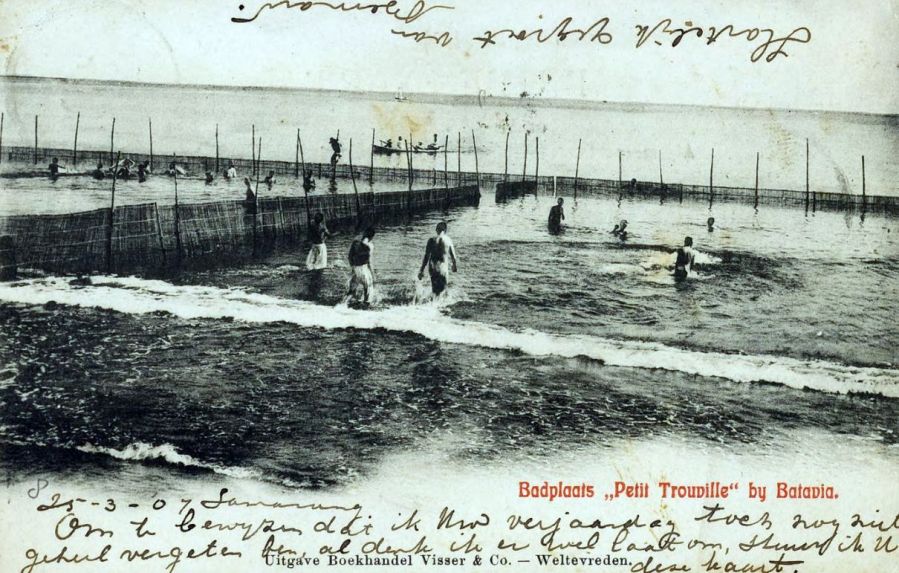 Hartelijk gegroet van
Badplaats „Petit Trouville“ by Batavia.
25-3-07 Samarang
Om te bewyzen dat ik Uw verjaardag toch nog niet
geheel vergeten ben, al denk ik er wel laat om, stuur ik U
deze kaart.
Uitgave Boekhandel Visser & Co. — Weltevreden.